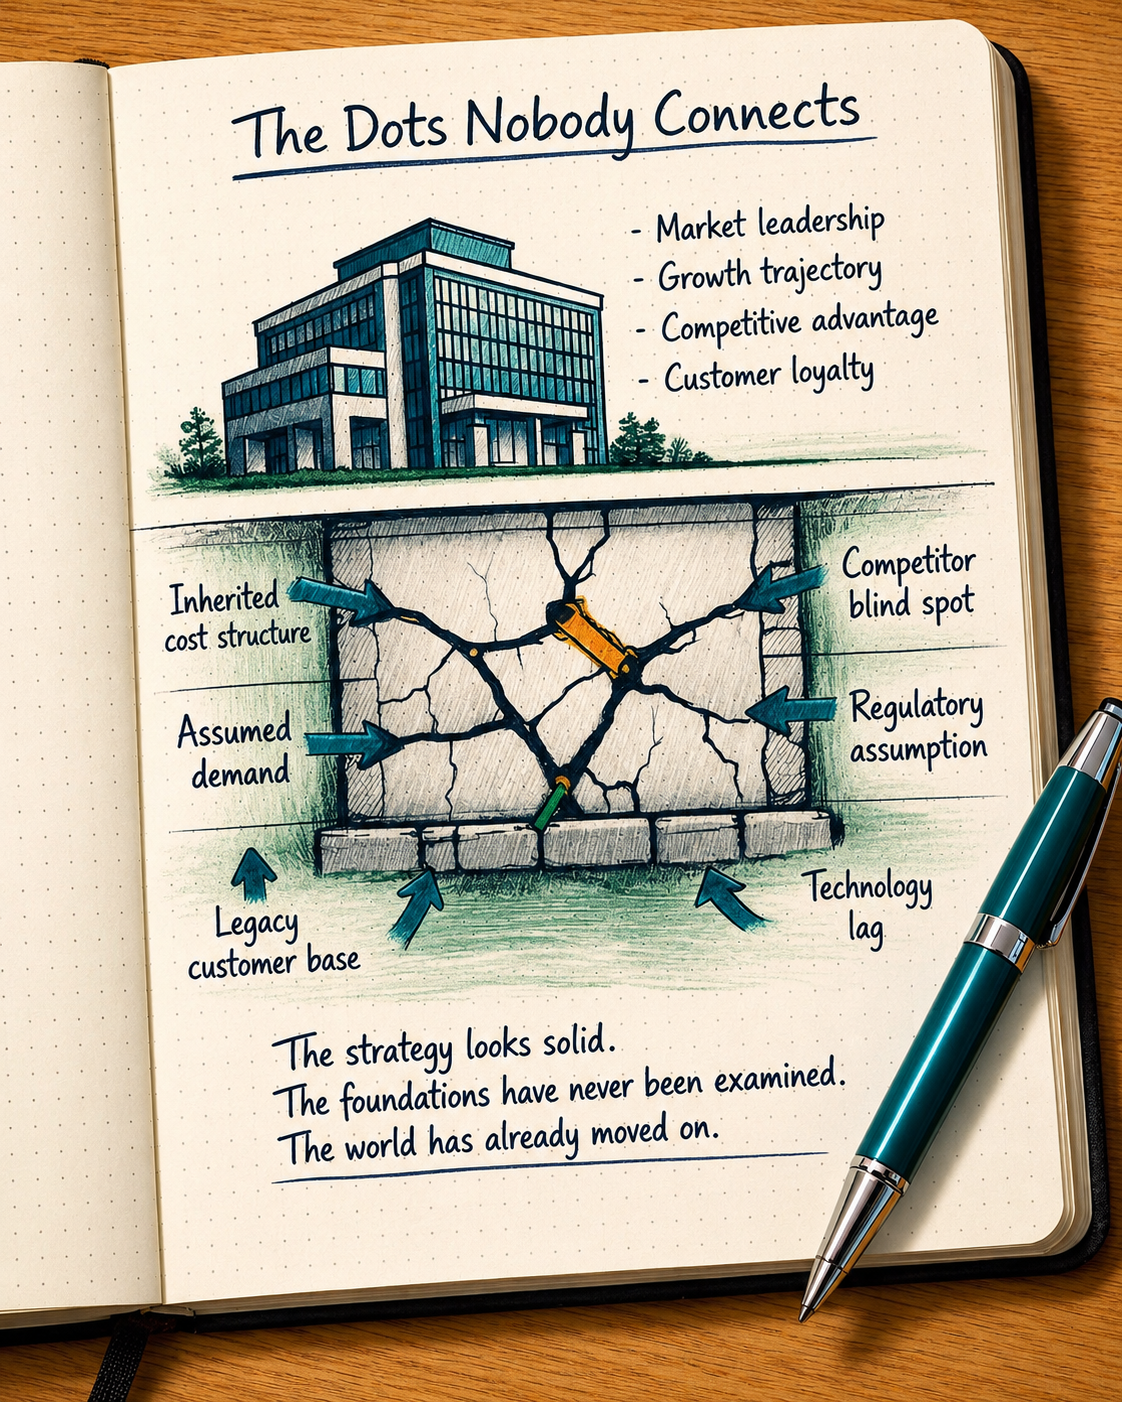 The Dots Nobody Connects
- Market leadership
- Growth trajectory
- Competitive advantage
- Customer loyalty
Inherited
cost structure
Competitor
blind spot
Assumed
demand
Regulatory
assumption
Legacy
customer base
Technology
lag
The strategy looks solid.
The foundations have never been examined.
The world has already moved on.